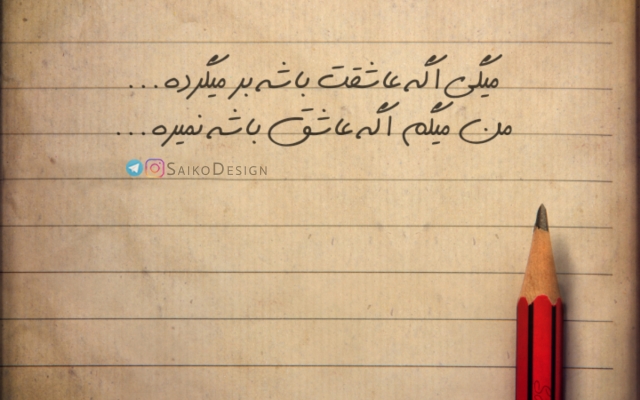 میگی اگه عاشقت باشه بر میگرده...
من میگم اگه عاشق باشه نمیره...
SAIKODESIGN